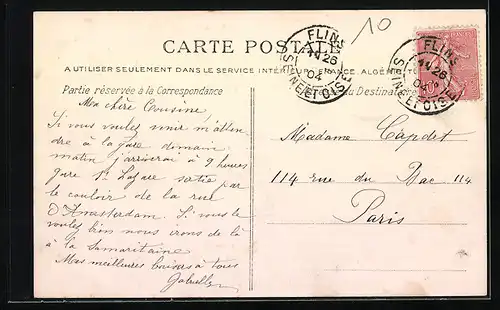 10
CARTE POSTALE
A UTILISER SEULEMENT DANS LE SERVICE INTÉRIEUR FRANCE, ALGÉRIE
Partie réservée à la Correspondance
du Destinataire
FLINS
26
04
SEINE ET OISE
FLINS
26
04
SEINE ET OISE
Ma chère Cousine,
Si vous voulez venir m'atten
dre à la gare demain
matin j'arriverai à 9 heures
gare St Lazare sortie par
le couloir de la rue
d'Amsterdam. Si vous le
voulez bien nous irons de là
à la Samaritaine
Mes meilleurs baisers à tous
Gabrielle
Madame Capdet
114 rue du Bac 114
Paris